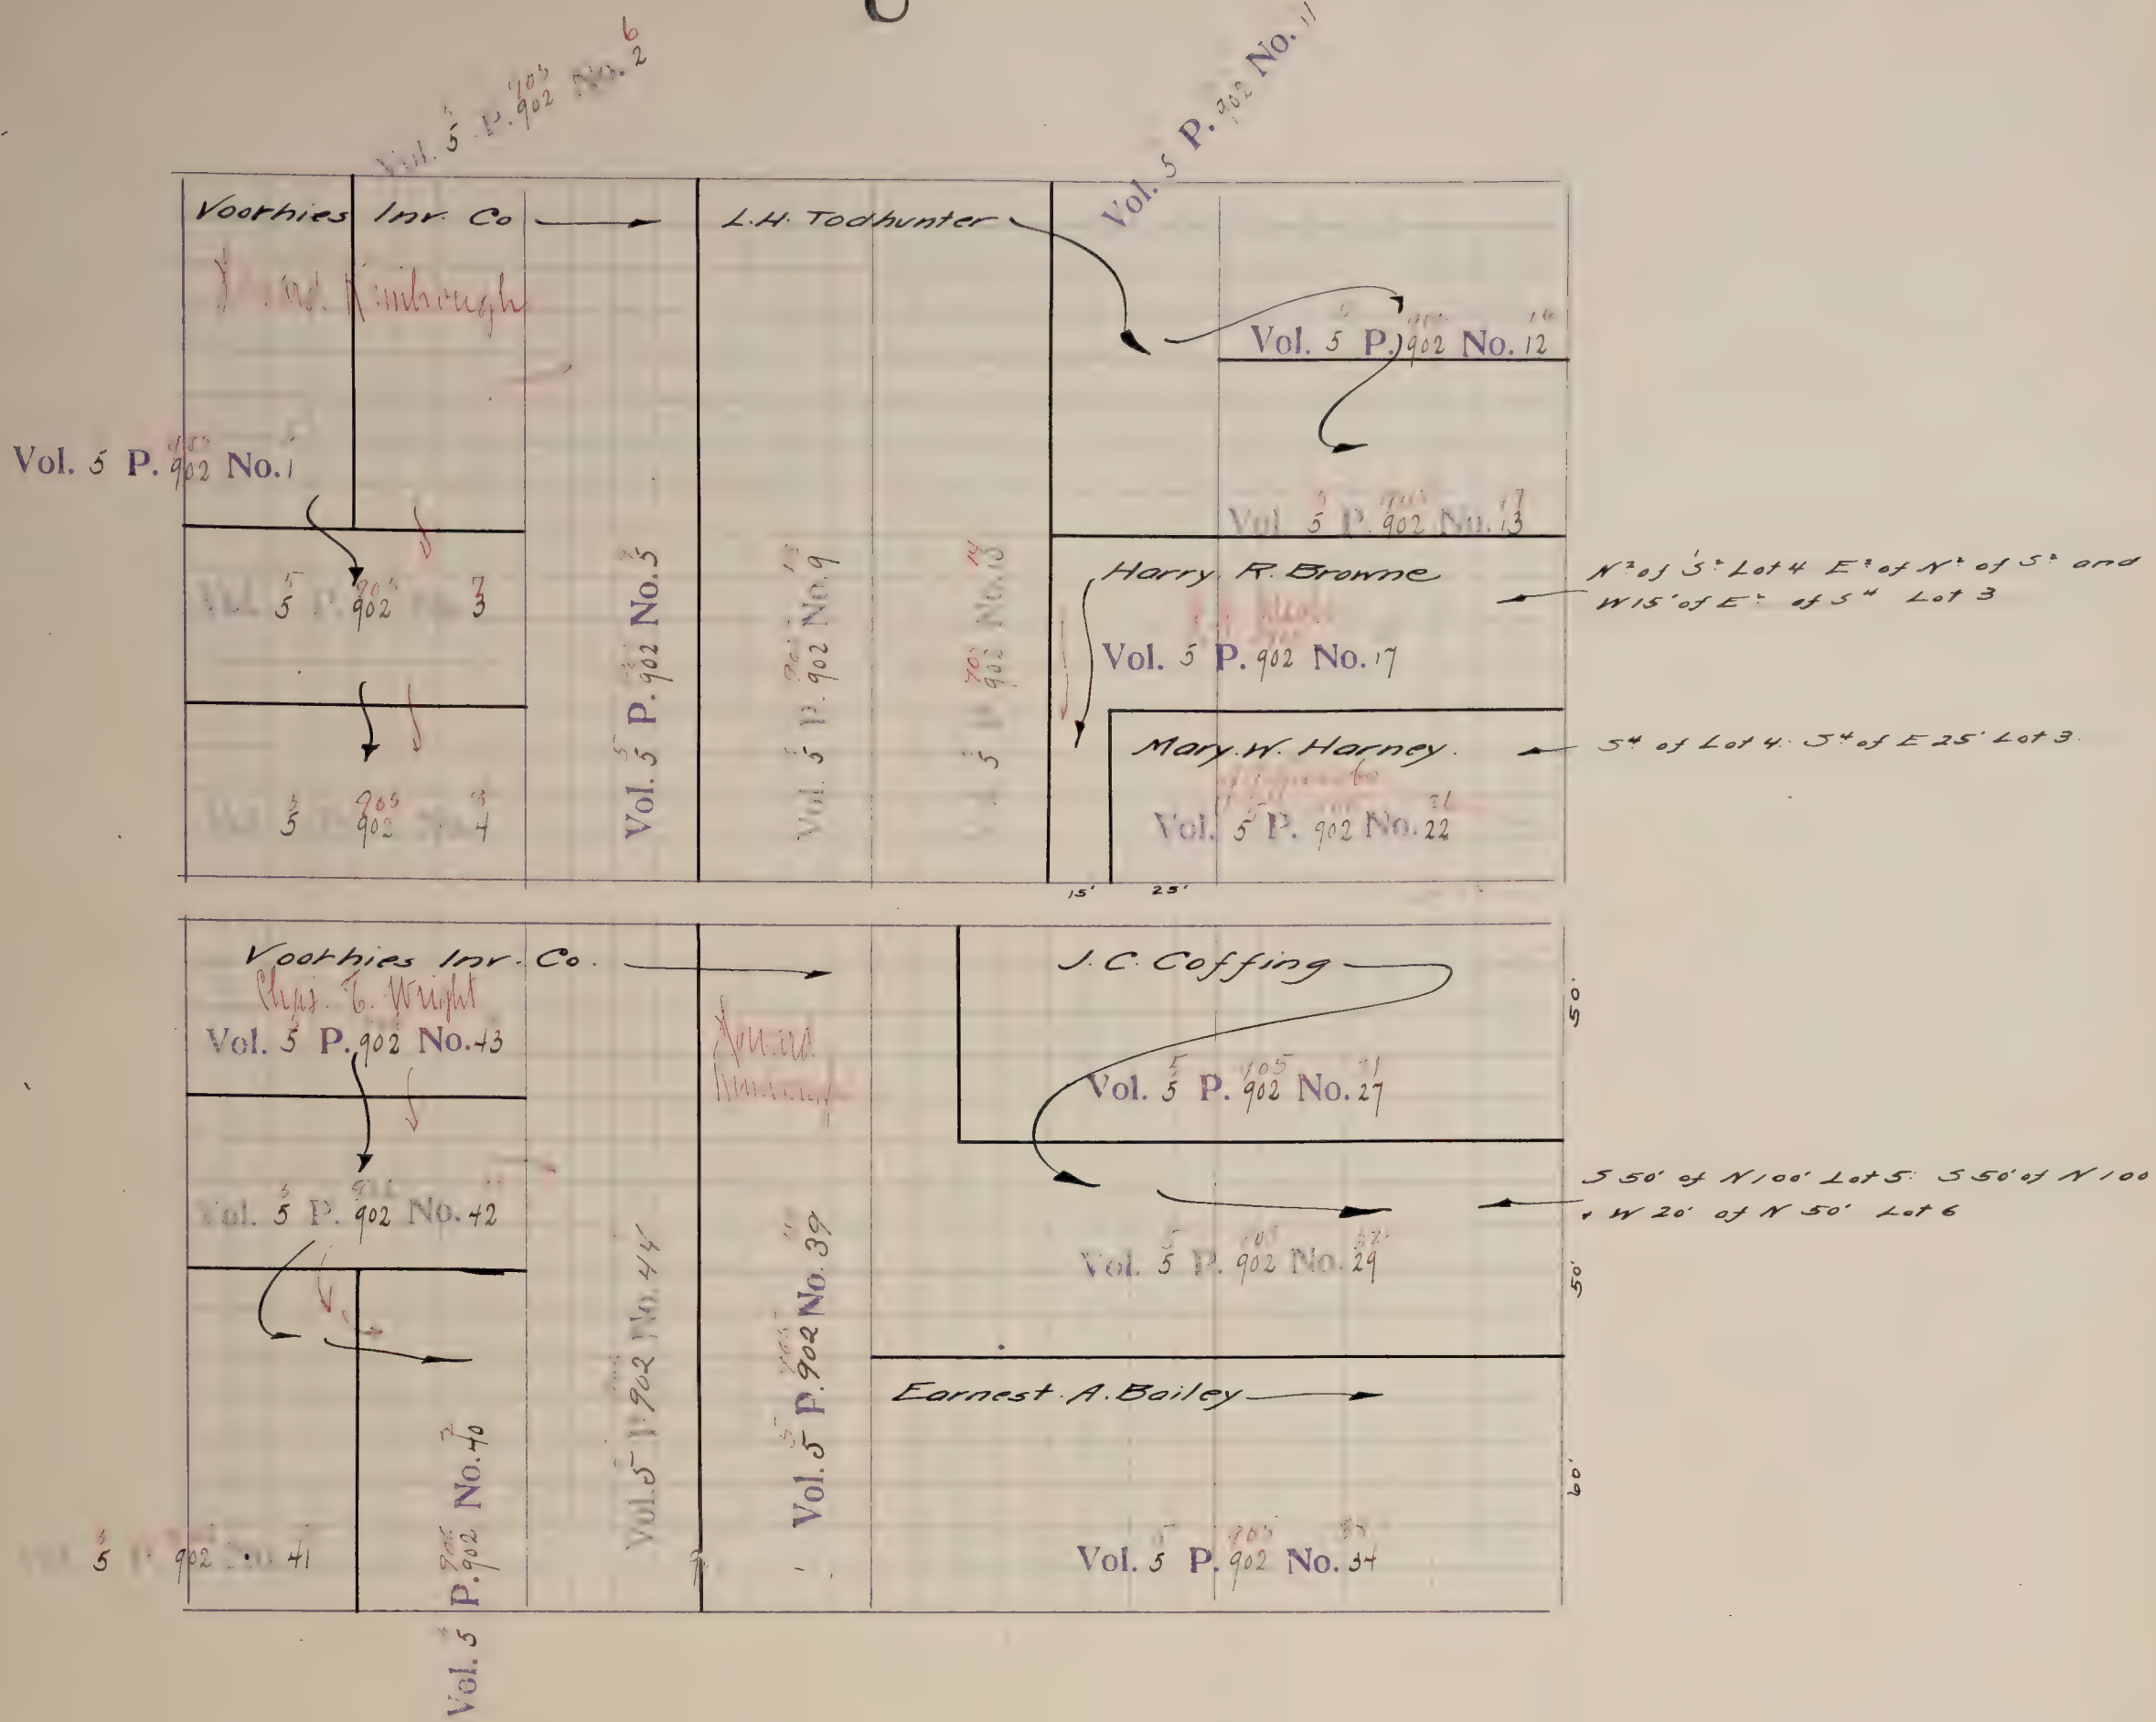 Vol. 5 P. 902 No. 2
6
Vol. 5 P. 902 No. 11
Voorhies Inv. Co
L.H. Todhunter
Kimbrough
Vol. 5 P. 902 No. 12
Vol. 5 P. 902 No. 1
Vol 5 P. 902 No. 13
Vol. 5 P. 902 No. 5
Vol. 5 P. 902 No. 9
5 P 902 No. 10
14
Harry R. Browne
N² of S² Lot 4 E² of N² of S² and
W 15' of E² of S⁴ Lot 3
Vol. 5 P. 902 3
Vol. 5 P. 902 No. 17
Mary W. Harney.
S⁴ of Lot 4: S⁴ of E 25' Lot 3.
Vol. 5 P. 902 No. 4
Vol. 5 P. 902 No. 22
15' 25'
Voorhies Inv. Co.
J.C. Coffing
50'
Chas. T. Wright
Vol. 5 P. 902 No. 43
Howard
Vol. 5 P. 902 No. 27
S 50' of N 100' Lot 5: S 50' of N 100
W 20' of N 50' Lot 6
Vol. 5 P. 902 No. 42
Vol. 5 P. 902 No. 44
Vol. 5 P. 902 No. 39
Vol. 5 P. 902 No. 29
50'
Earnest A. Bailey
60'
5 P 902 No. 41
Vol. 5 P. 902 No. 40
Vol. 5 P. 902 No. 34